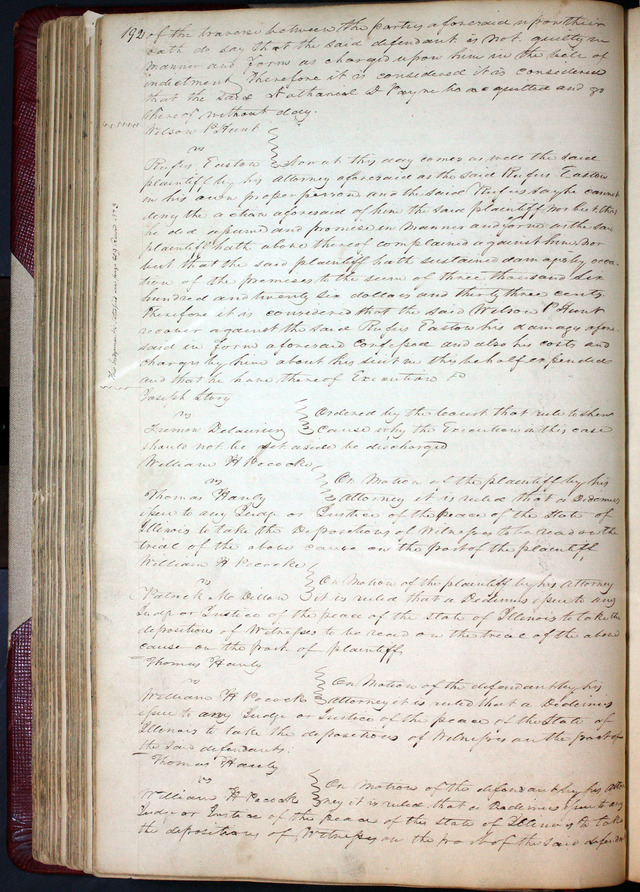 192 of the traverse between the parties aforesaid upon their
oath do say that the said defendant is not guilty in
manner and form as charged upon him in the bill of
indictment Therefore it is considered it is considered
that the said Nathaniel D Payne be acquitted and go
thereof without day.
Wilson P. Hunt
vs
Rufus Easton Now at this day comes as well the said
plaintiff by his attorney aforesaid as the said Rufus Easton
in his own proper person and the said Rufus say he cannot
deny the action aforesaid of him the said plaintiff nor but that
he did assume and promise in manner and form as the said
plaintiff hath above thereof complained against him nor
but that the said plaintiff hath sustained damages by occa
tion of the premises to the sum of three thousand six
hundred and twenty six dollars and thirty three cents
therefore it is considered that the said Wilson P Hunt
recover against the said Rufus Easton his damages afore
said in form aforesaid Confessed and also his costs and
charges by him about his suit in this behalf expended
and that he have thereof Execution
Joseph Story
vs
Fremon Delauriere Ordered by the Court that rule to show
cause why the Execution in this case
should not be set aside be discharged
William H Pococke
vs
Thomas Hanly On Motion of the plaintiff by his
attorney it is ruled that a Dedimus
issue to any Judge or Justice of the peace of the State of
Illinois to take the Depositions of Witnesses to be read on the
trial of the above cause on the part of the plaintiff
William H Pococke
vs
Patrick Mc Dillon On Motion of the plaintiff by his Attorney
it is ruled that a Dedimus issue to any
Judge or Justice of the peace of the state of Illinois to take the
depositions of Witnesses to be read on the trial of the above
cause on the part of plaintiff
Thomas Hanly
vs
William H Pocock On Motion of the defendant by his
attorney it is ruled that a Dedimus
issue to any Judge or Justice of the peace of the State of
Illinois to take the depositions of Witnesses on the part of
the said defendants.
Thomas Hanly
vs
William H Pocock On Motion of the defendant by his attor
ney it is ruled that a Dedimus issue to any
Judge or Justice of the peace of the state of Illinois to take
the depositions of Witnesses on the part of the said defendant